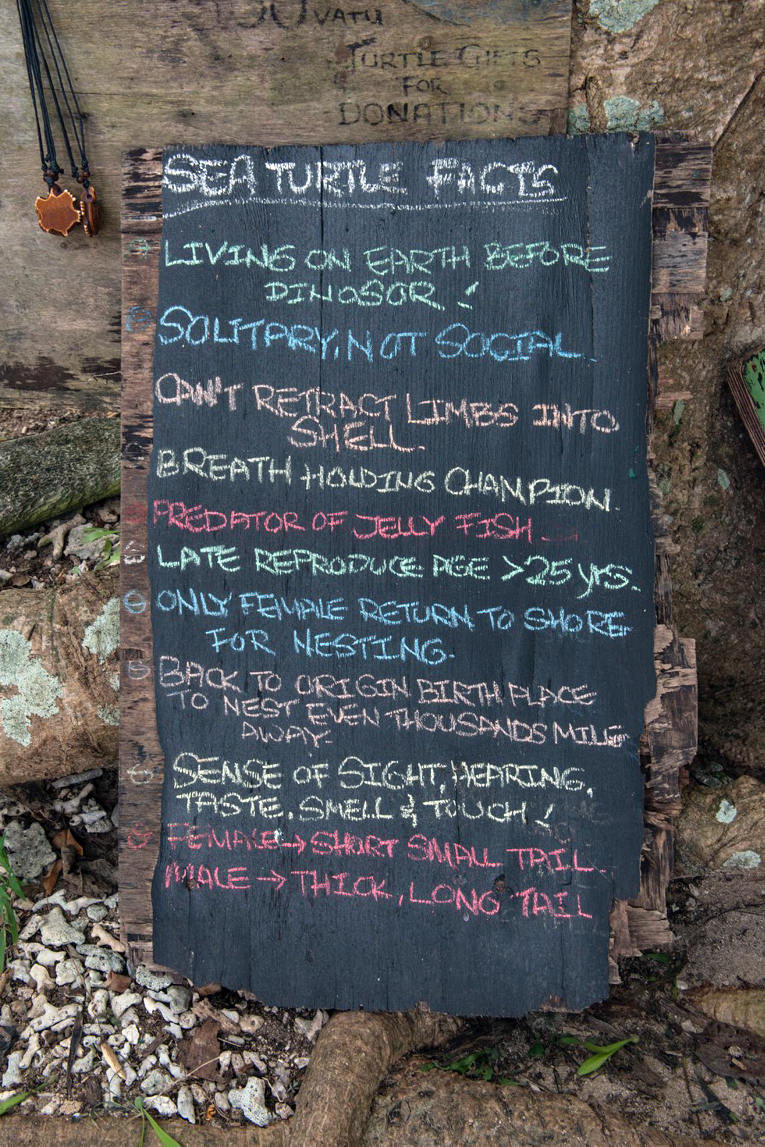 VATU
TURTLE GIFTS
FOR
DONATIONS
SEA TURTLE FACTS
LIVING ON EARTH BEFORE
DINOSOR!
SOLITARY, NOT SOCIAL.
CAN'T RETRACT LIMBS INTO
SHELL.
BREATH HOLDING CHAMPION.
PREDATOR OF JELLY FISH
LATE REPRODUCE AGE >25 yrs.
ONLY FEMALE RETURN TO SHORE
FOR NESTING.
BACK TO ORIGIN BIRTH PLACE
TO NEST EVEN THOUSANDS MILE
AWAY.
SENSE OF SIGHT, HEARING,
TASTE, SMELL & TOUCH!
FEMALE → SHORT SMALL TAIL.
MALE → THICK, LONG TAIL